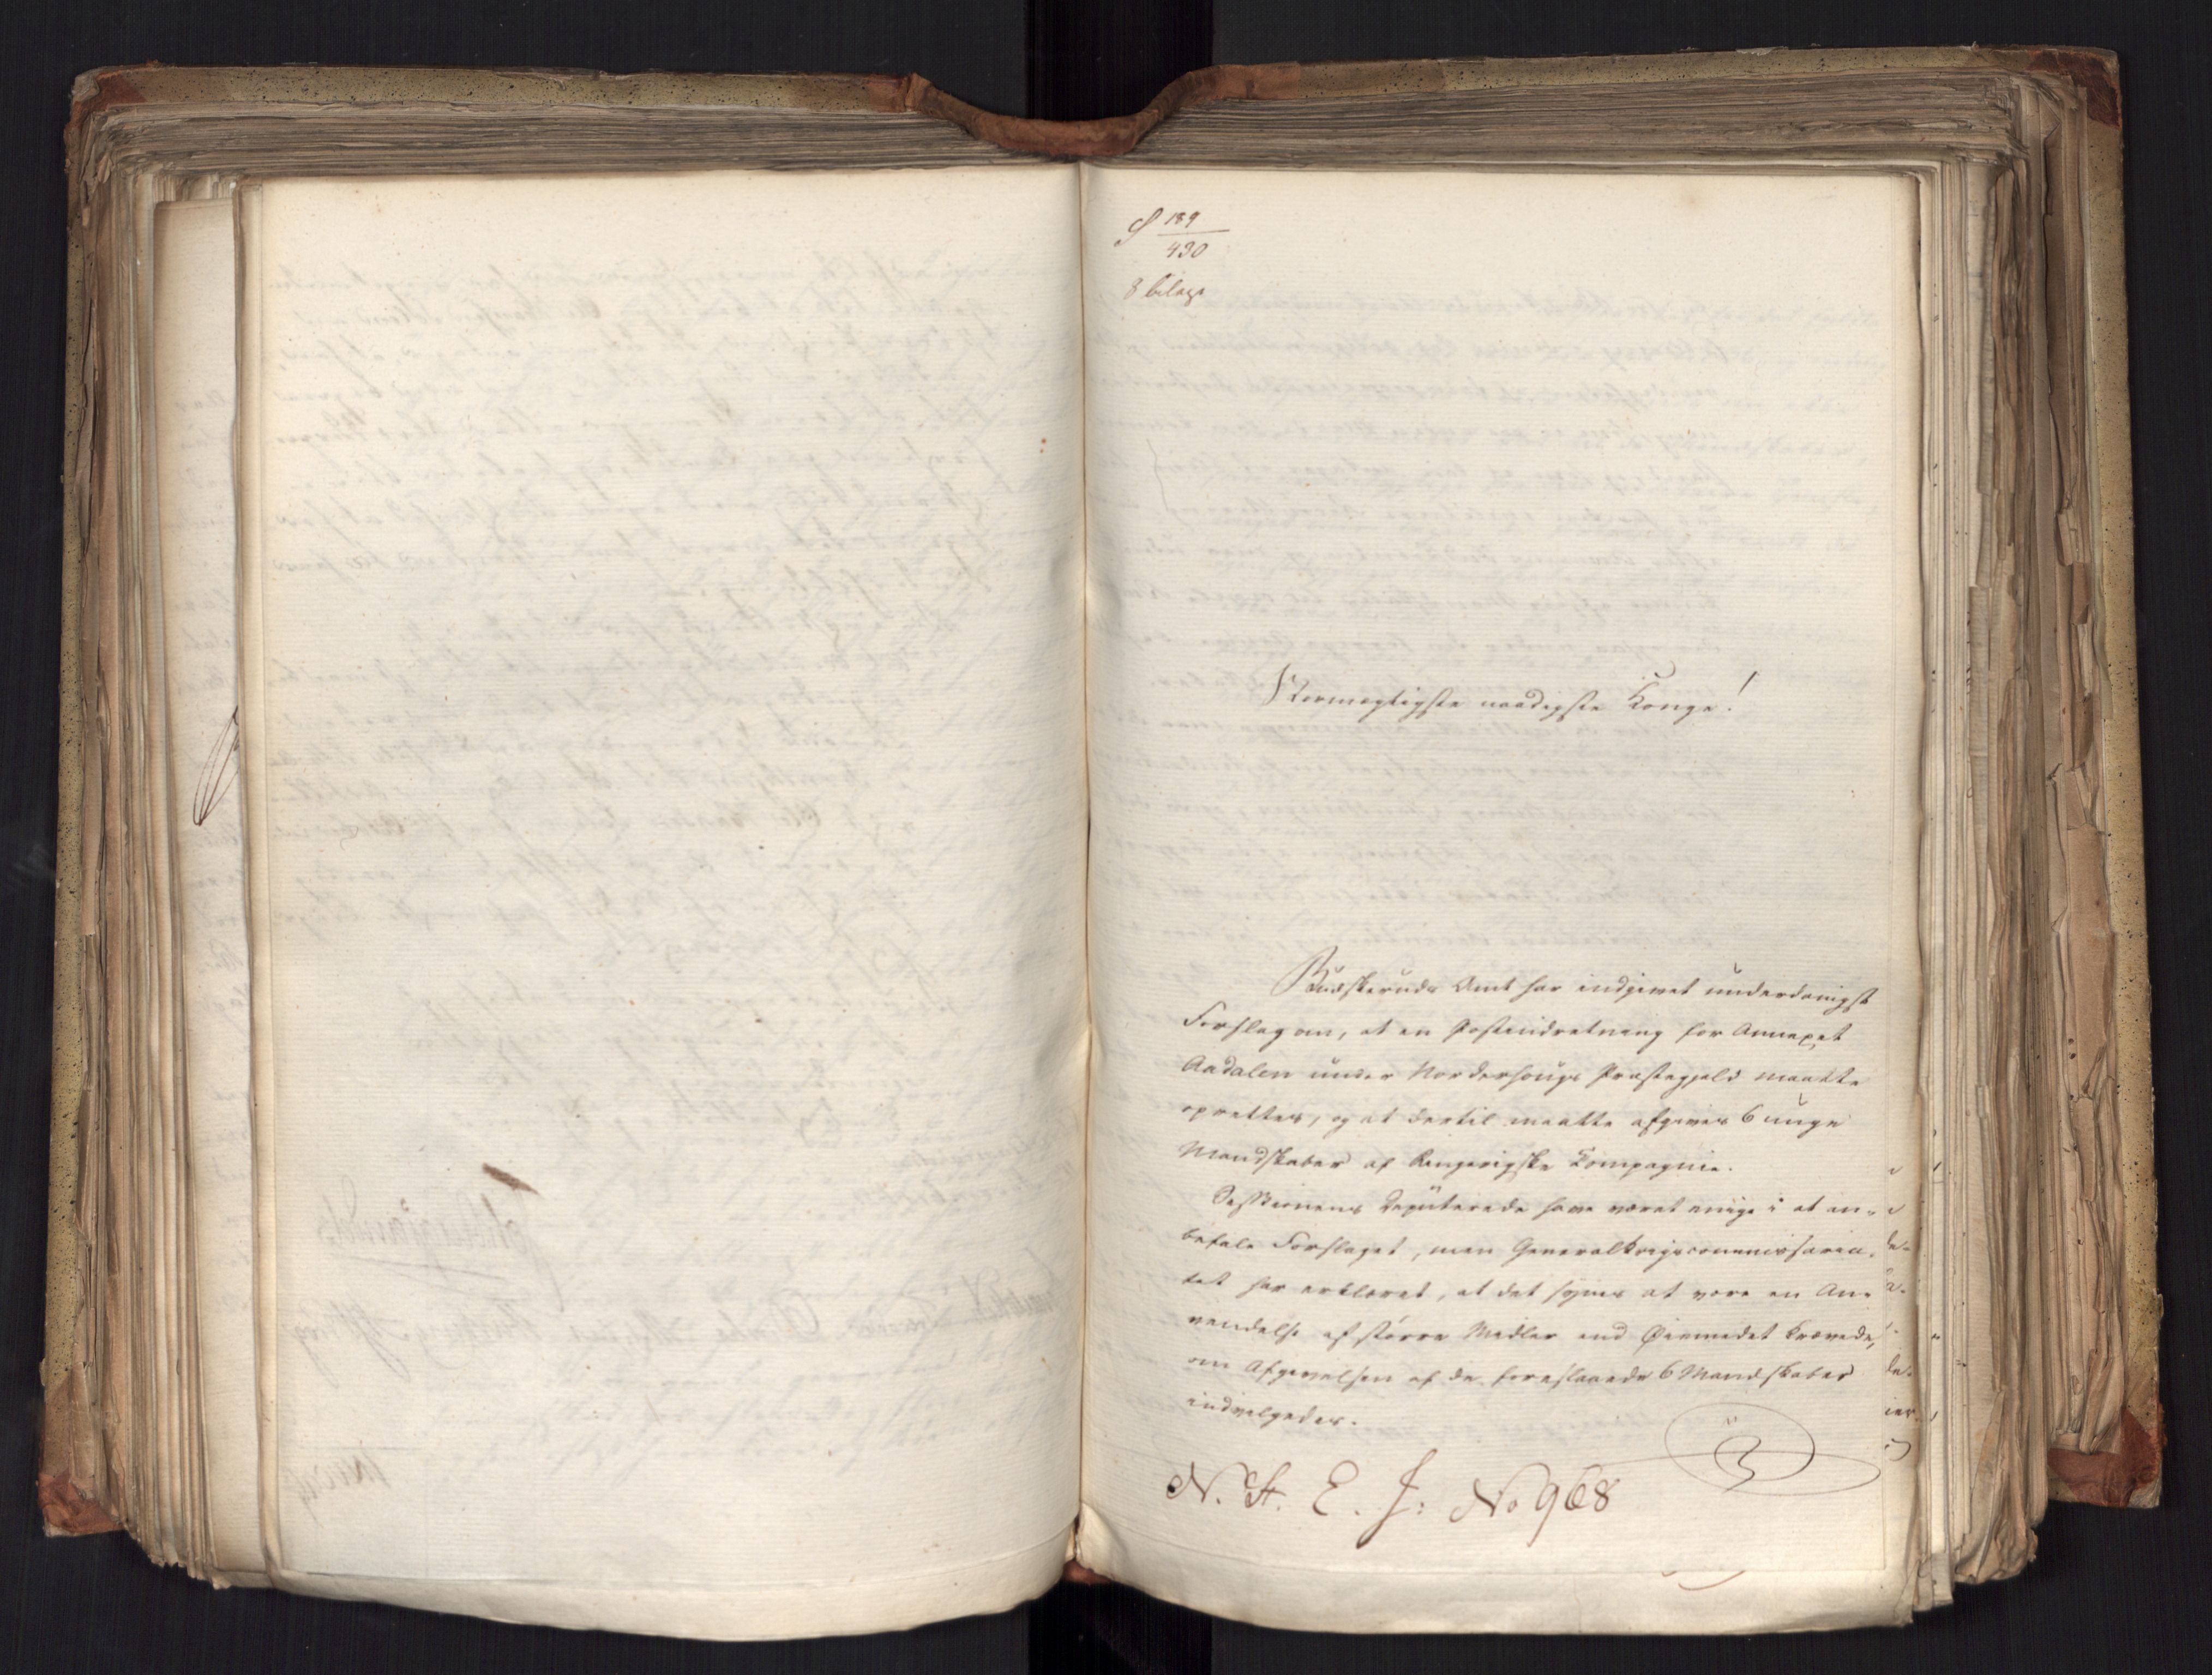 S 189
430
8 bilage
Stormægtigste naadigste Konge!
Budskeruds Amt har indgivet underdanigst
Forslag om, at en Postindretning for Annexet
Aadalen under Norderhougs Præstegjeld maatte
oprettes, og at dertil maatte afgives 6 unge
Mandskaber af Ringerigske Compagnie.
Sessionens Deputerede have været enige i at an-
befale Forslaget, men Generalkrigscommissaria-
tet har erklæret, at det synes at være en An-
vendelse af større Midler end Øiemedet krævede,
om Afgivelsen af de foreslaaede 6 Mandskaber
indvilgedes.
N. St. E. J: No 968